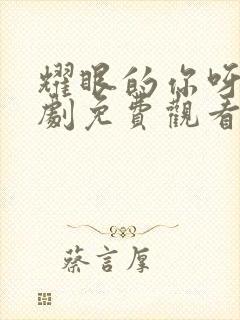 耀眼的你呀
劇免費觀看
蔡言厚